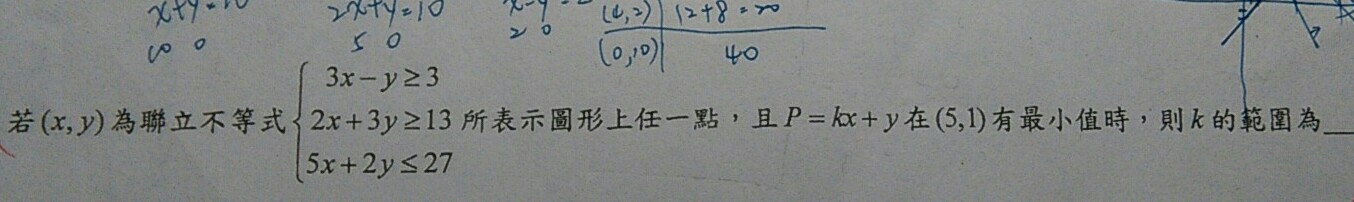 2x+y=10
5 0
2 0
(4,2) 12+8=20
(0,10) 40
若(x,y)為聯立不等式{3x-y≥3
2x+3y≥13所表示圖形上任一點，且P=kx+y在(5,1)有最小值時，則k的範圍為__
5x+2y≤27